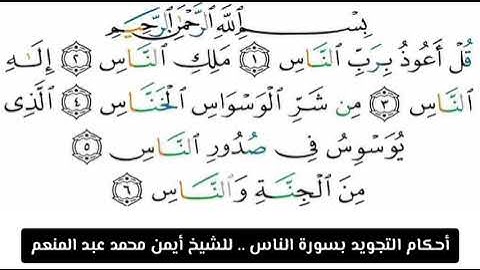 بِسْمِ ٱللَّهِ ٱلرَّحْمَٰنِ ٱلرَّحِيمِ
قُلْ أَعُوذُ بِرَبِّ ٱلنَّاسِ ١ مَلِكِ ٱلنَّاسِ ٢ إِلَٰهِ
ٱلنَّاسِ ٣ مِن شَرِّ ٱلْوَسْوَاسِ ٱلْخَنَّاسِ ٤ ٱلَّذِى
يُوَسْوِسُ فِى صُدُورِ ٱلنَّاسِ ٥
مِنَ ٱلْجِنَّةِ وَٱلنَّاسِ ٦
أحكام التجويد بسورة الناس .. للشيخ أيمن محمد عبد المنعم